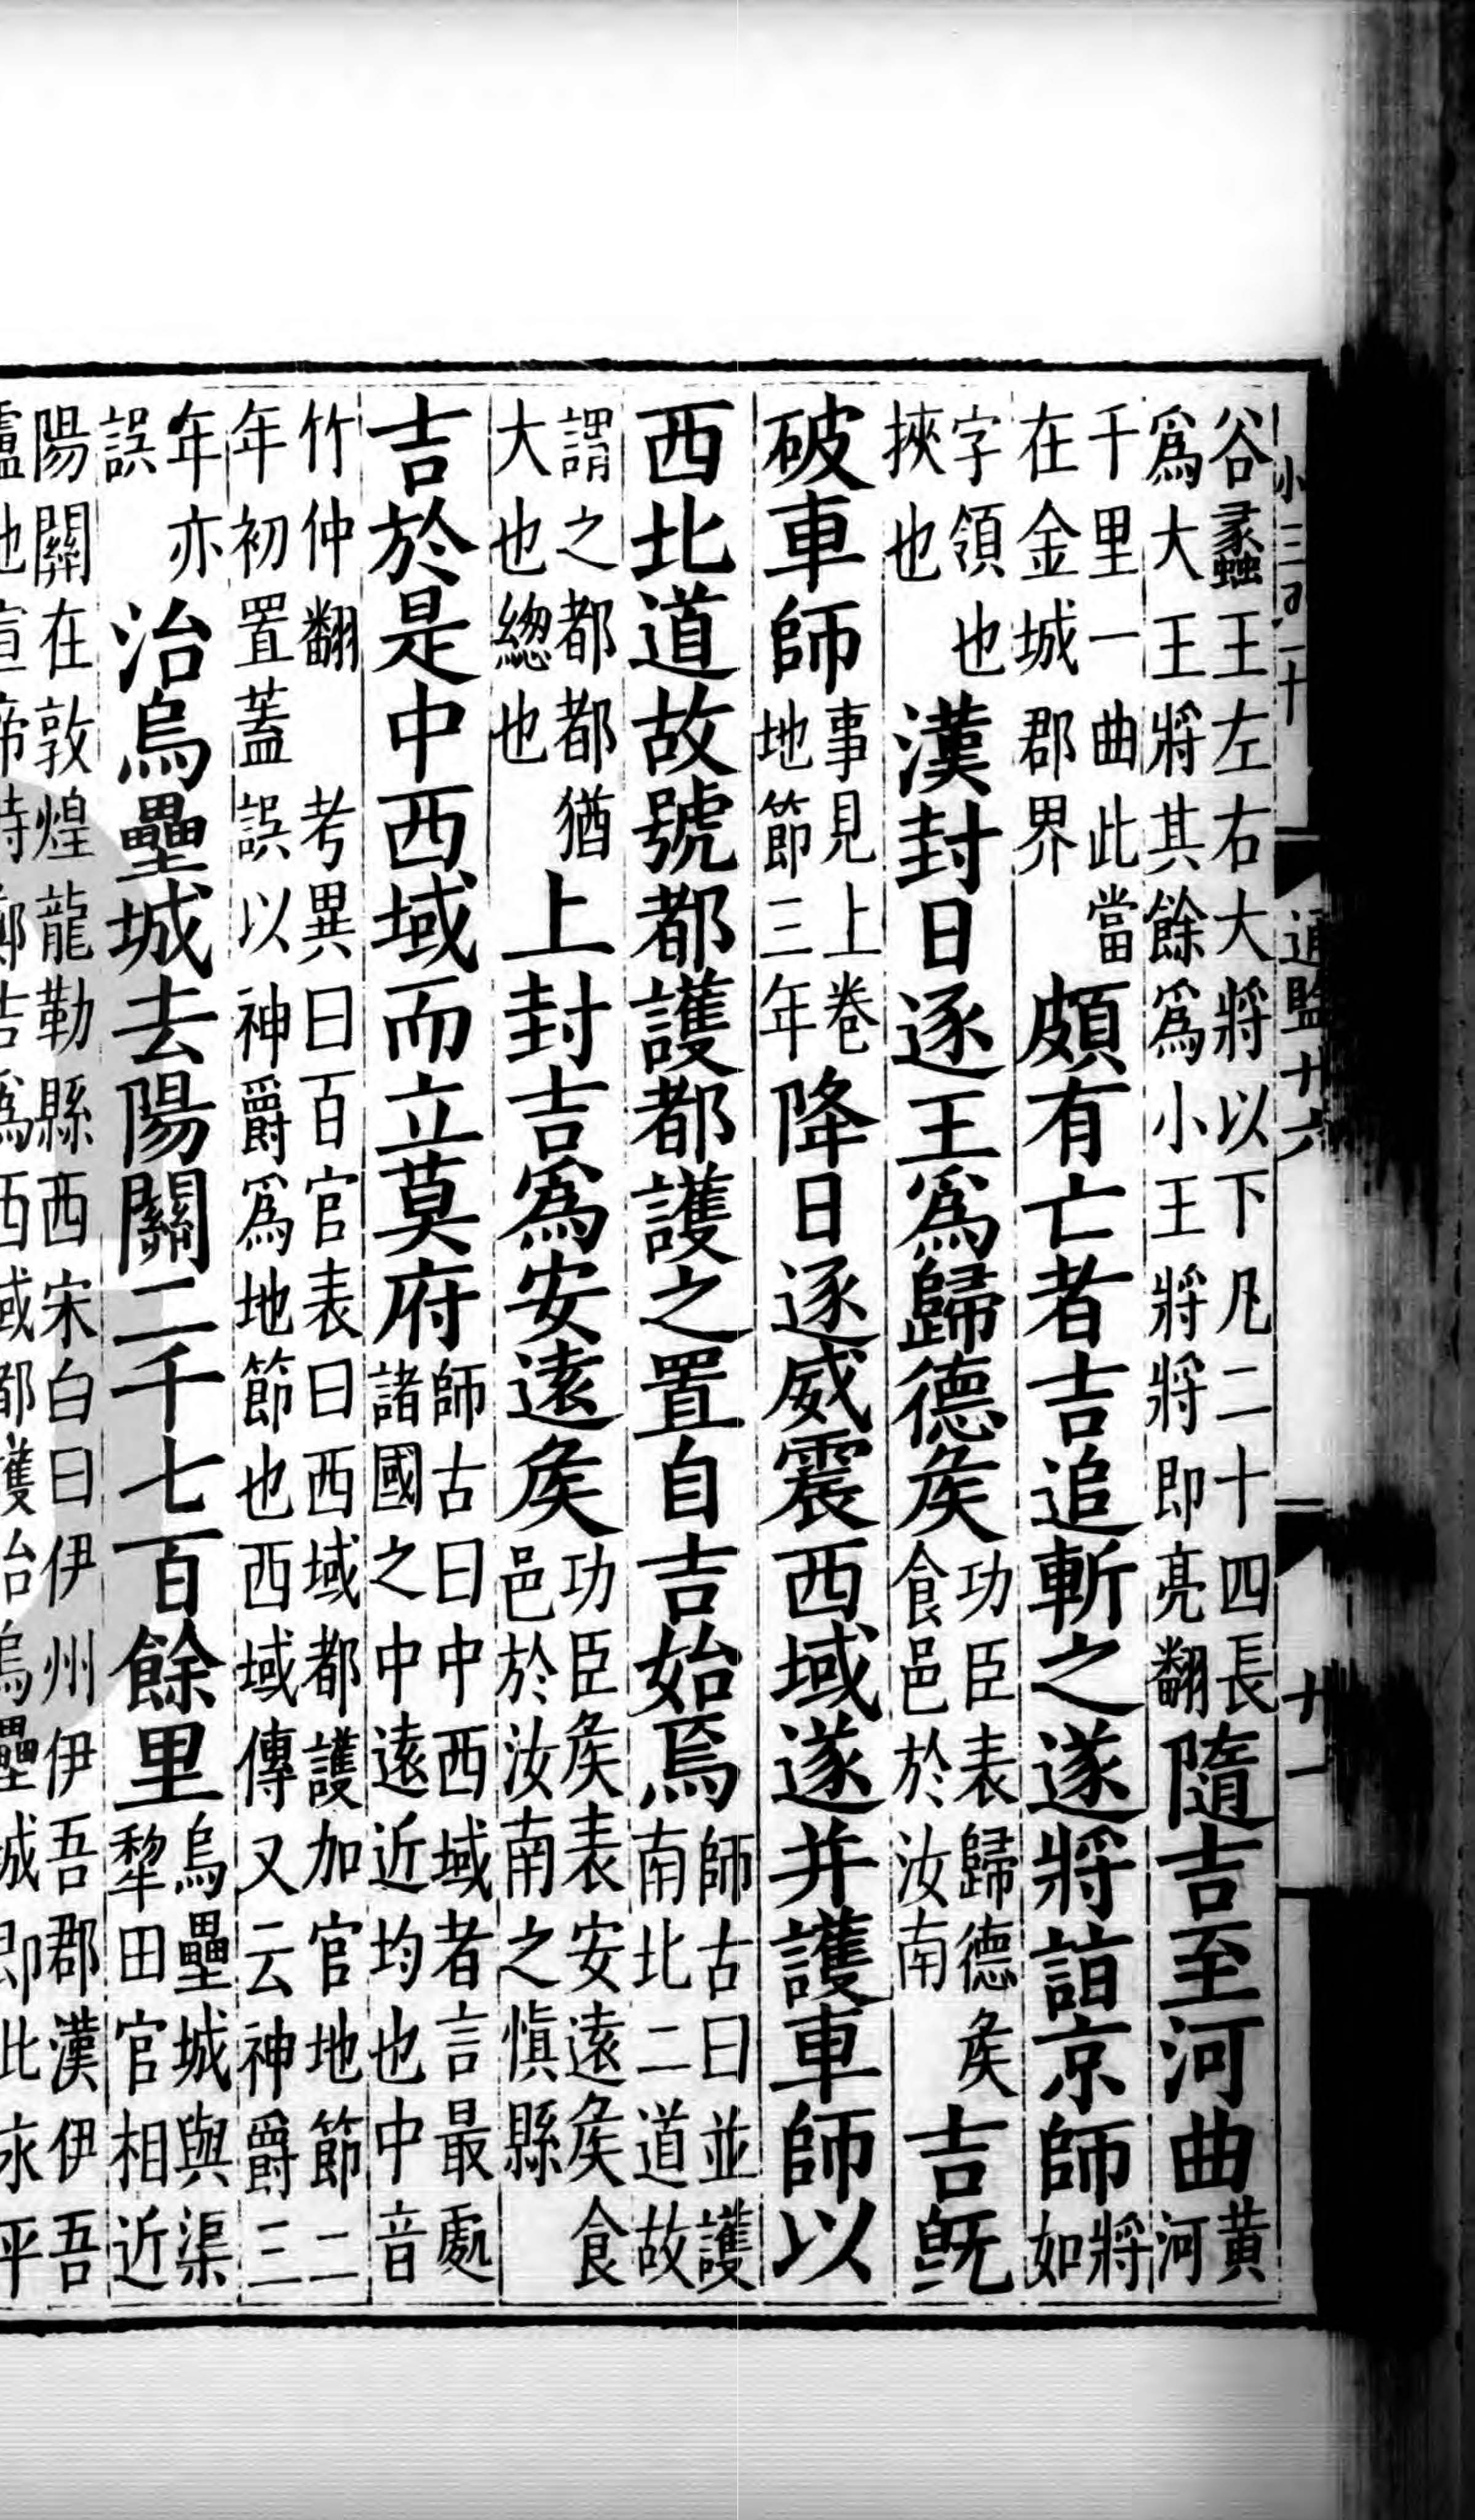 小三百二十 通監廿六 廿一
谷蠡王王左右大將以下凡二十四長爲大王將其餘爲小王將將即亮翻隨吉至河曲黃河
千里一曲此當在金城郡界頗有亡者吉追斬之遂將詣京師將如
字領也挾也漢封日逐王爲歸德矦功臣表歸德矦食邑於汝南吉旣
破車師事見上卷地節三年降日逐威震西域遂并護車師以
西北道故號都護都護之置自吉始焉師古曰並護南北二道故
謂之都都猶大也總也上封吉爲安遠矦功臣矦表安遠矦食邑於汝南之愼縣
吉於是中西域而立莫府師古曰中西域者言最處諸國之中中遠近均也中音
竹仲翻考異曰百官表曰西域都護加官地節二年初置蓋誤以神爵爲地節也西域傳又云神爵三
年亦誤治烏壘城去陽關二千七百餘里烏壘城與渠犂田官相近
陽關在敦煌龍勒縣西宋白曰伊州伊吾郡漢伊吾